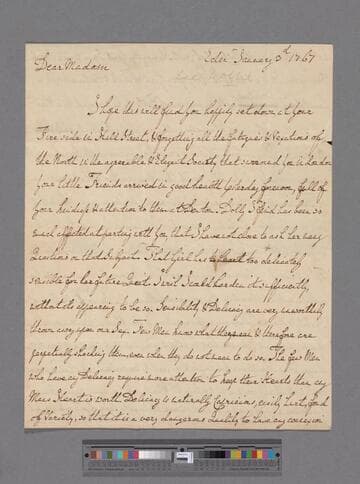 Edinr January 3d 1767
Dear Madam
I hope this will find you happily set down at your
Fire side in Hill Street, & forgetting all the fatigues & Vexations of
the North in the agreeable & Elegant Society that surround you in London
your little Friends arrived in good health yesterday forenoon, full of
your kindness & attention to them at Denton. Dolly I find has been so
much affected at parting with you, that I have not chose to ask her many
Questions on that Subject. That Girl has a heart too delicately
sensible for her future Quiet. I wish I could harden it sufficiently,
without its appearing to be so. Sensibility & Delicacy are very unworthily
thrown away upon our Sex. Few Men know what they mean & therefore are
perpetually shocking them even when they do not mean to do so. The few Men
who have any Delicacy require more attention to keep their Hearts than any
Mans Heart is worth. Delicacy is naturally capricious, easily hurt, fond
of Variety, so that it is a very dangerous Quality to have any connexion